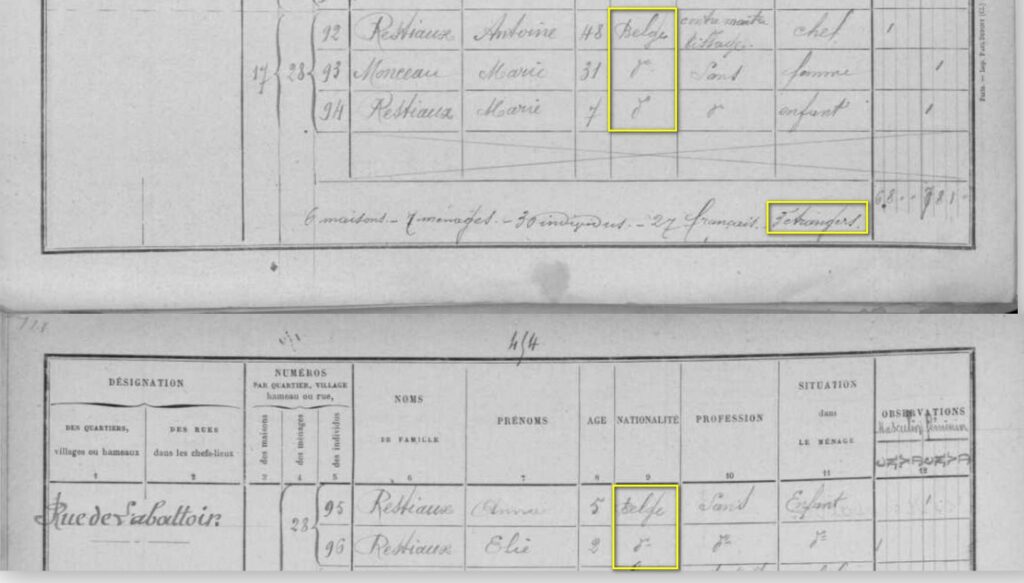 92 Restiaux Antoine 48 Belge contre maitre tissage chef 1
17 28 93 Monceau Marie 31 d° Sans femme 1
94 Restiaux Marie 7 d° d° enfant 1
6 8 " " 7 8 1 "
6 maisons – 7 ménages. – 30 individus. – 27 français. 3 étrangers.
Paris. — Imp. Paul Dupont (Cl.)
454
DÉSIGNATION
DES QUARTIERS, villages ou hameaux
DES RUES dans les chefs-lieux
NUMÉROS
PAR QUARTIER, VILLAGE
hameau ou rue,
des maisons
des ménages
des individus
NOMS
DE FAMILLE
PRÉNOMS
AGE
NATIONALITÉ
PROFESSION
SITUATION
dans
LE MÉNAGE
OBSERVATIONS
Masculin féminin
G M V G M V D
1 2 3 4 5 6 7 8 9 10 11 12
Rue de Labattoir.
28 95 Restiaux Anna 5 Belge Sans Enfant 1
96 Restiaux Elie 2 d° d° d° 1